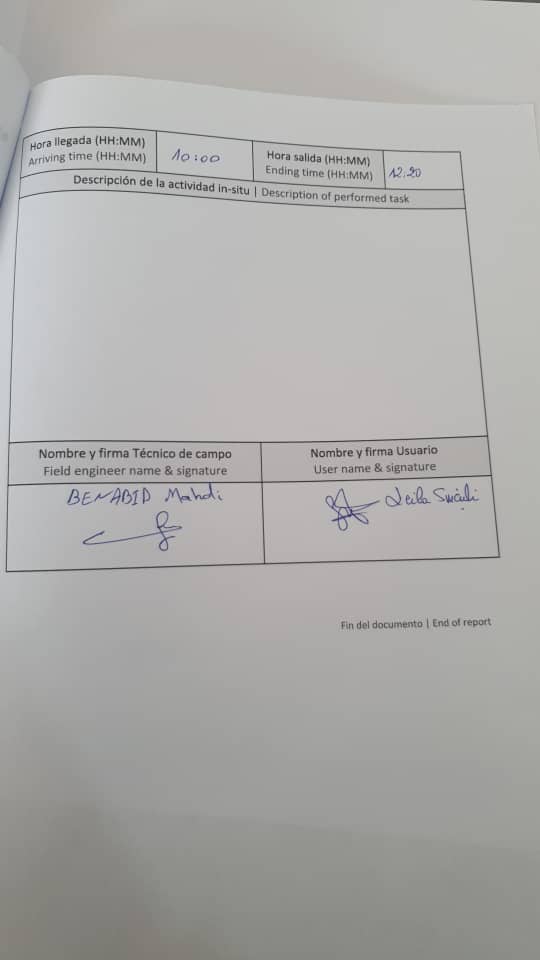 Hora llegada (HH:MM)
Arriving time (HH:MM)
10:00
Hora salida (HH:MM)
Ending time (HH:MM)
12.20
Descripción de la actividad in-situ | Description of performed task
Nombre y firma Técnico de campo
Field engineer name & signature
Nombre y firma Usuario
User name & signature
BENABID Mahdi
Leila
Fin del documento | End of report